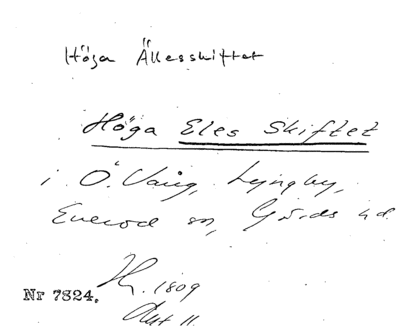 Höga Ällesskiftet
Höga Eles Skiftet
i Ö. Vång, Lyngby,
Everöd sn, Gärds hd
Nr 7824. 1809
Akt 11.